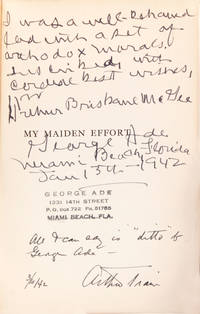 I was a well-behaved
lad with a set of
orthodox morals.
with
cordial best wishes,
Arthur Brisbane McGee
MY MAIDEN EFFORT
George Ade
Miami Beach, Florida
Jan 15th - 1942
GEORGE ADE
1331 14TH STREET
P.O. BOX 722 PH. 51785
MIAMI BEACH, FLA.
All I can say is "ditto" to
George Ade —
3/10/42 Arthur Train